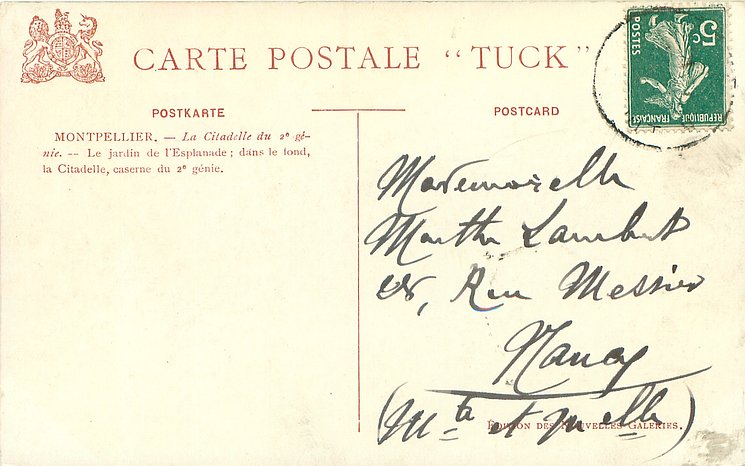 CARTE POSTALE "TUCK"
POSTES
5c
REPUBLIQUE FRANÇAISE
POSTKARTE
POSTCARD
MONTPELLIER. — La Citadelle du 2e gé-
nie. -- Le jardin de l'Esplanade ; dans le fond,
la Citadelle, caserne du 2e génie.
Mademoiselle
Marthe Lambert
Rue Messier
Nancy
(Mthe et
EDITION DES NOUVELLES GALERIES.